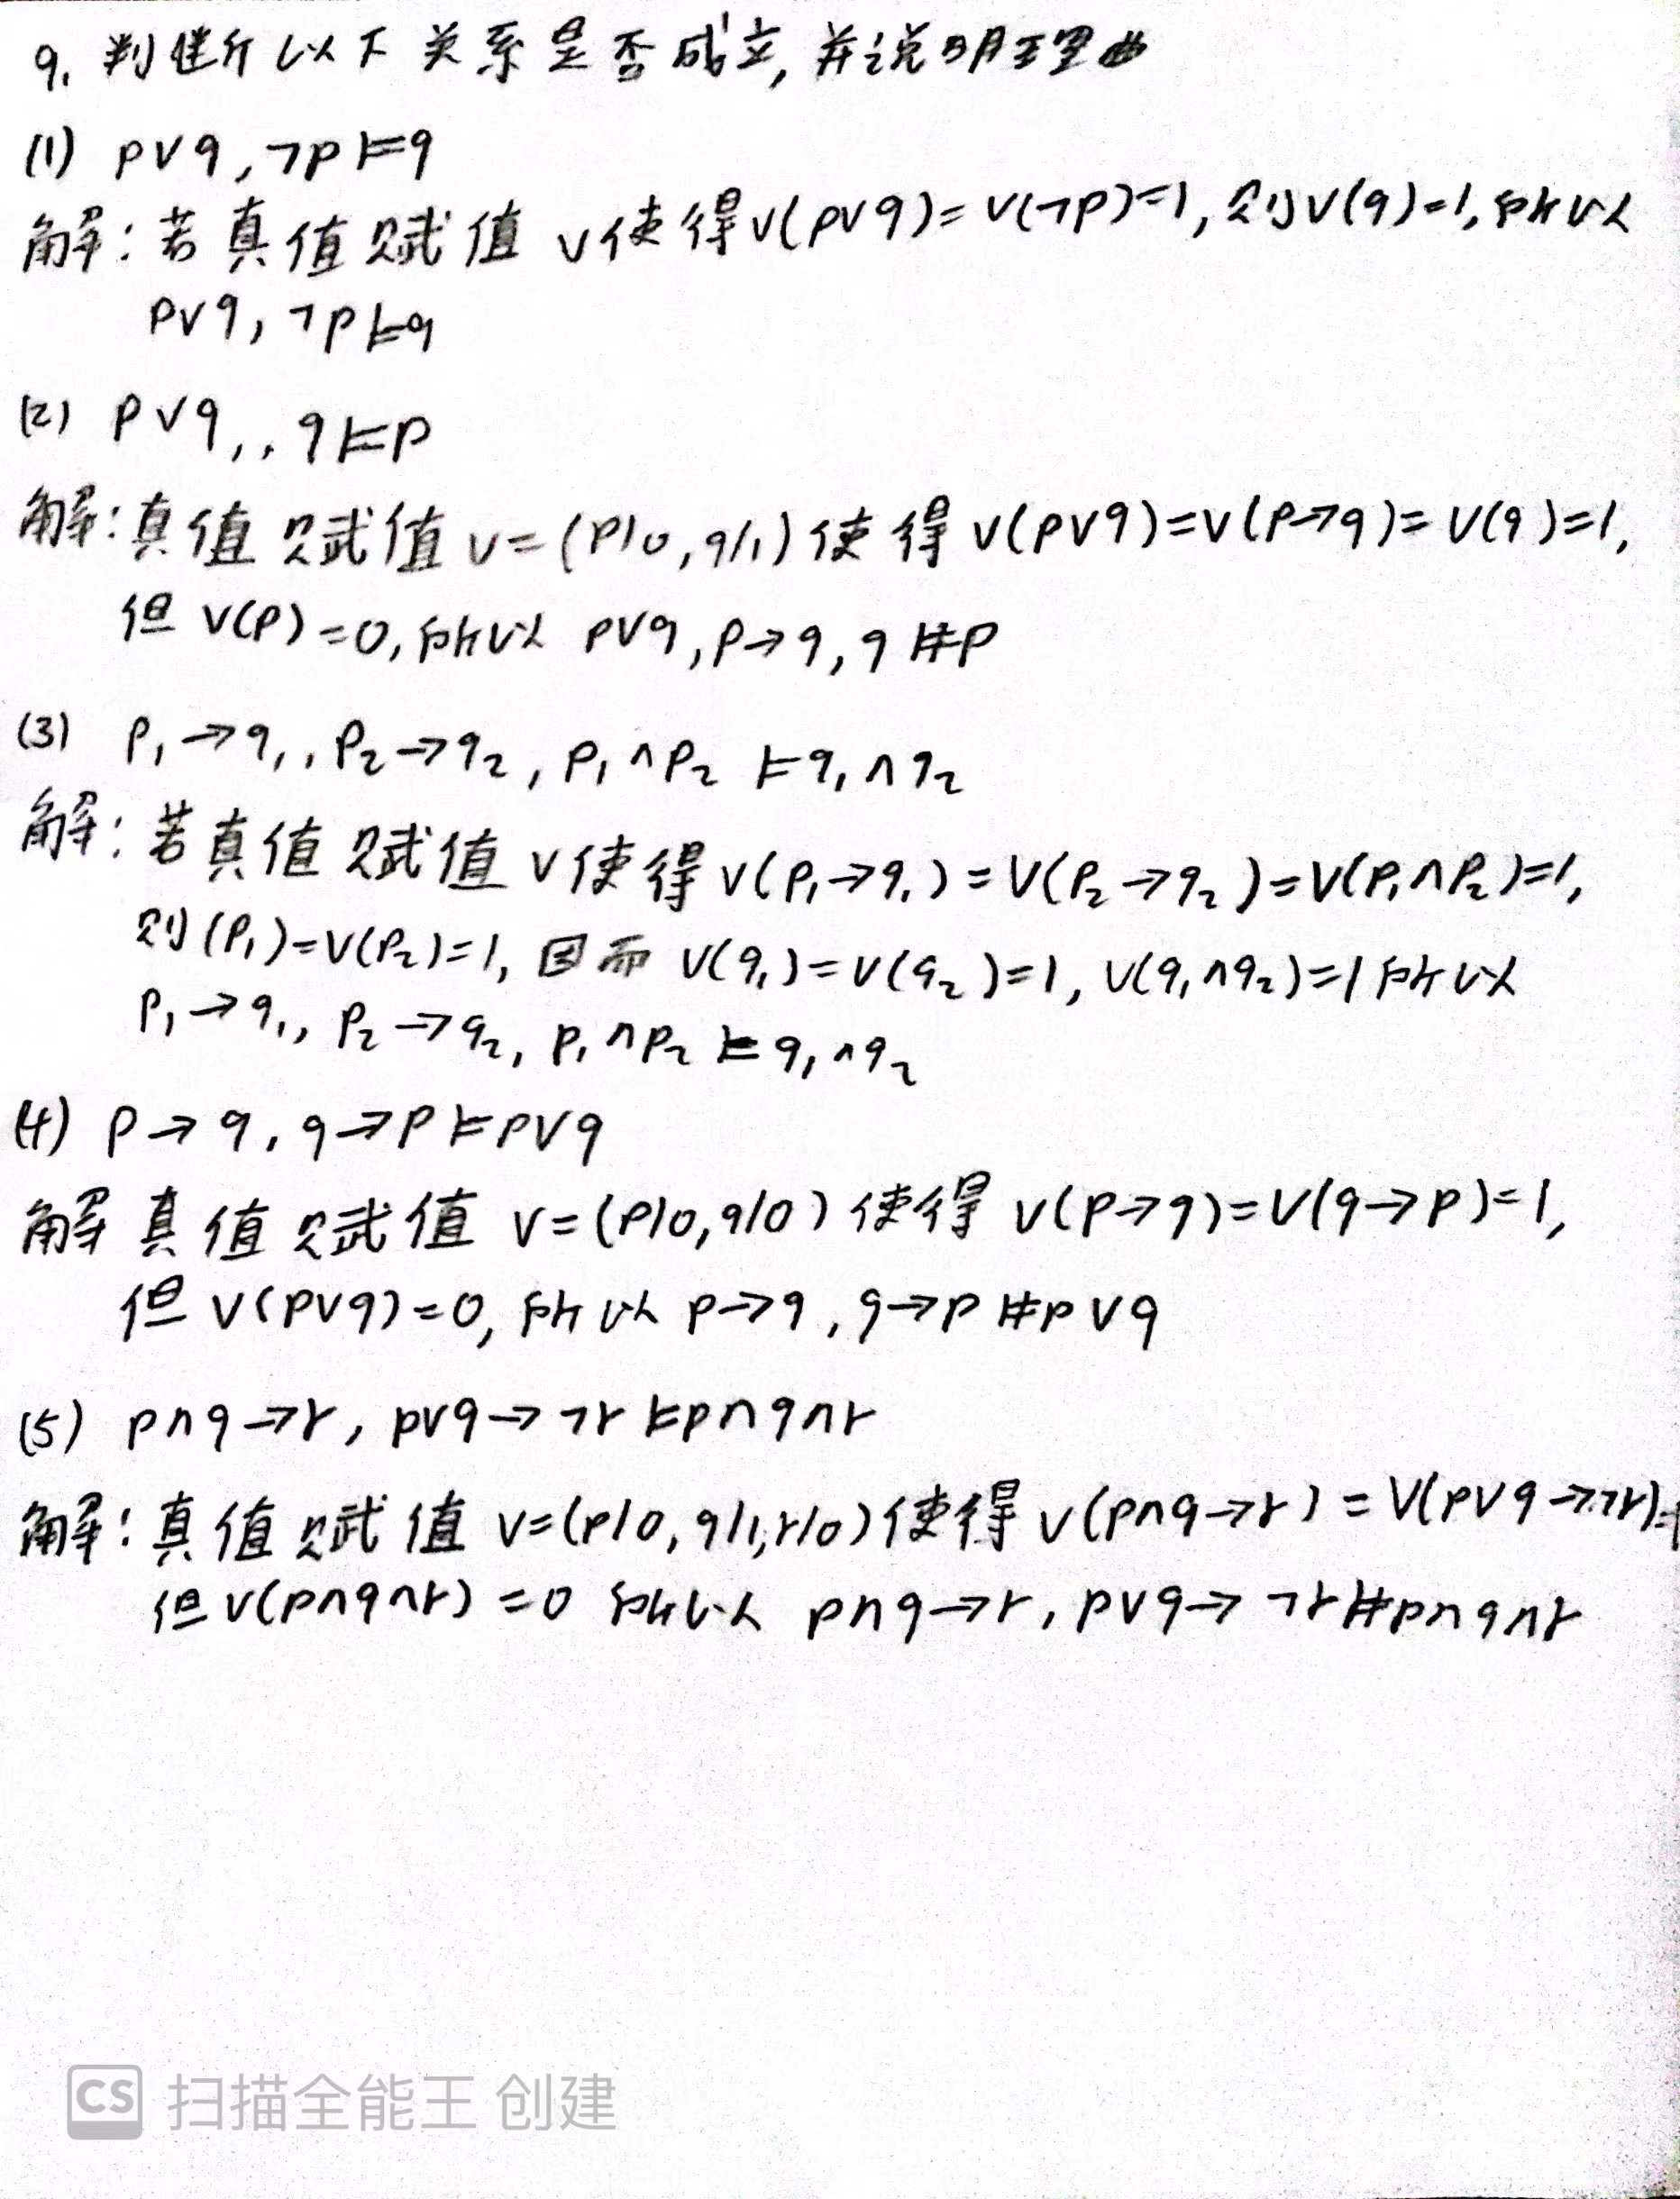 9. 判断以下关系是否成立, 并说明理由
(1) p∨q, ¬p⊨q
解: 若真值赋值 v使得v(p∨q)=v(¬p)=1, 则v(q)=1, 所以
p∨q, ¬p⊨q
(2) p∨q,, q⊨p
解: 真值赋值 v=(p/0, q/1) 使得 v(p∨q)=v(p→q)=v(q)=1,
但 v(p)=0, 所以 p∨q, p→q, q⊭p
(3) p₁→q₁,, p₂→q₂, p₁∧p₂ ⊨q₁∧q₂
解: 若真值赋值 v使得 v(p₁→q₁)=v(p₂→q₂)=v(p₁∧p₂)=1,
则(p₁)=v(p₂)=1, 因而 v(q₁)=v(q₂)=1, v(q₁∧q₂)=1 所以
p₁→q₁, p₂→q₂, p₁∧p₂ ⊨ q₁∧q₂
(4) p→q, q→p⊨p∨q
解 真值赋值 v=(p/0, q/0) 使得 v(p→q)=v(q→p)=1,
但 v(p∨q)=0, 所以 p→q, q→p⊭p∨q
(5) p∧q→r, p∨q→¬r⊨p∧q∧r
解: 真值赋值 v=(p/0, q/1, r/0)使得 v(p∧q→r)=v(p∨q→¬r)=1
但v(p∧q∧r)=0 所以 p∧q→r, p∨q→¬r⊭p∧q∧r
CS 扫描全能王 创建